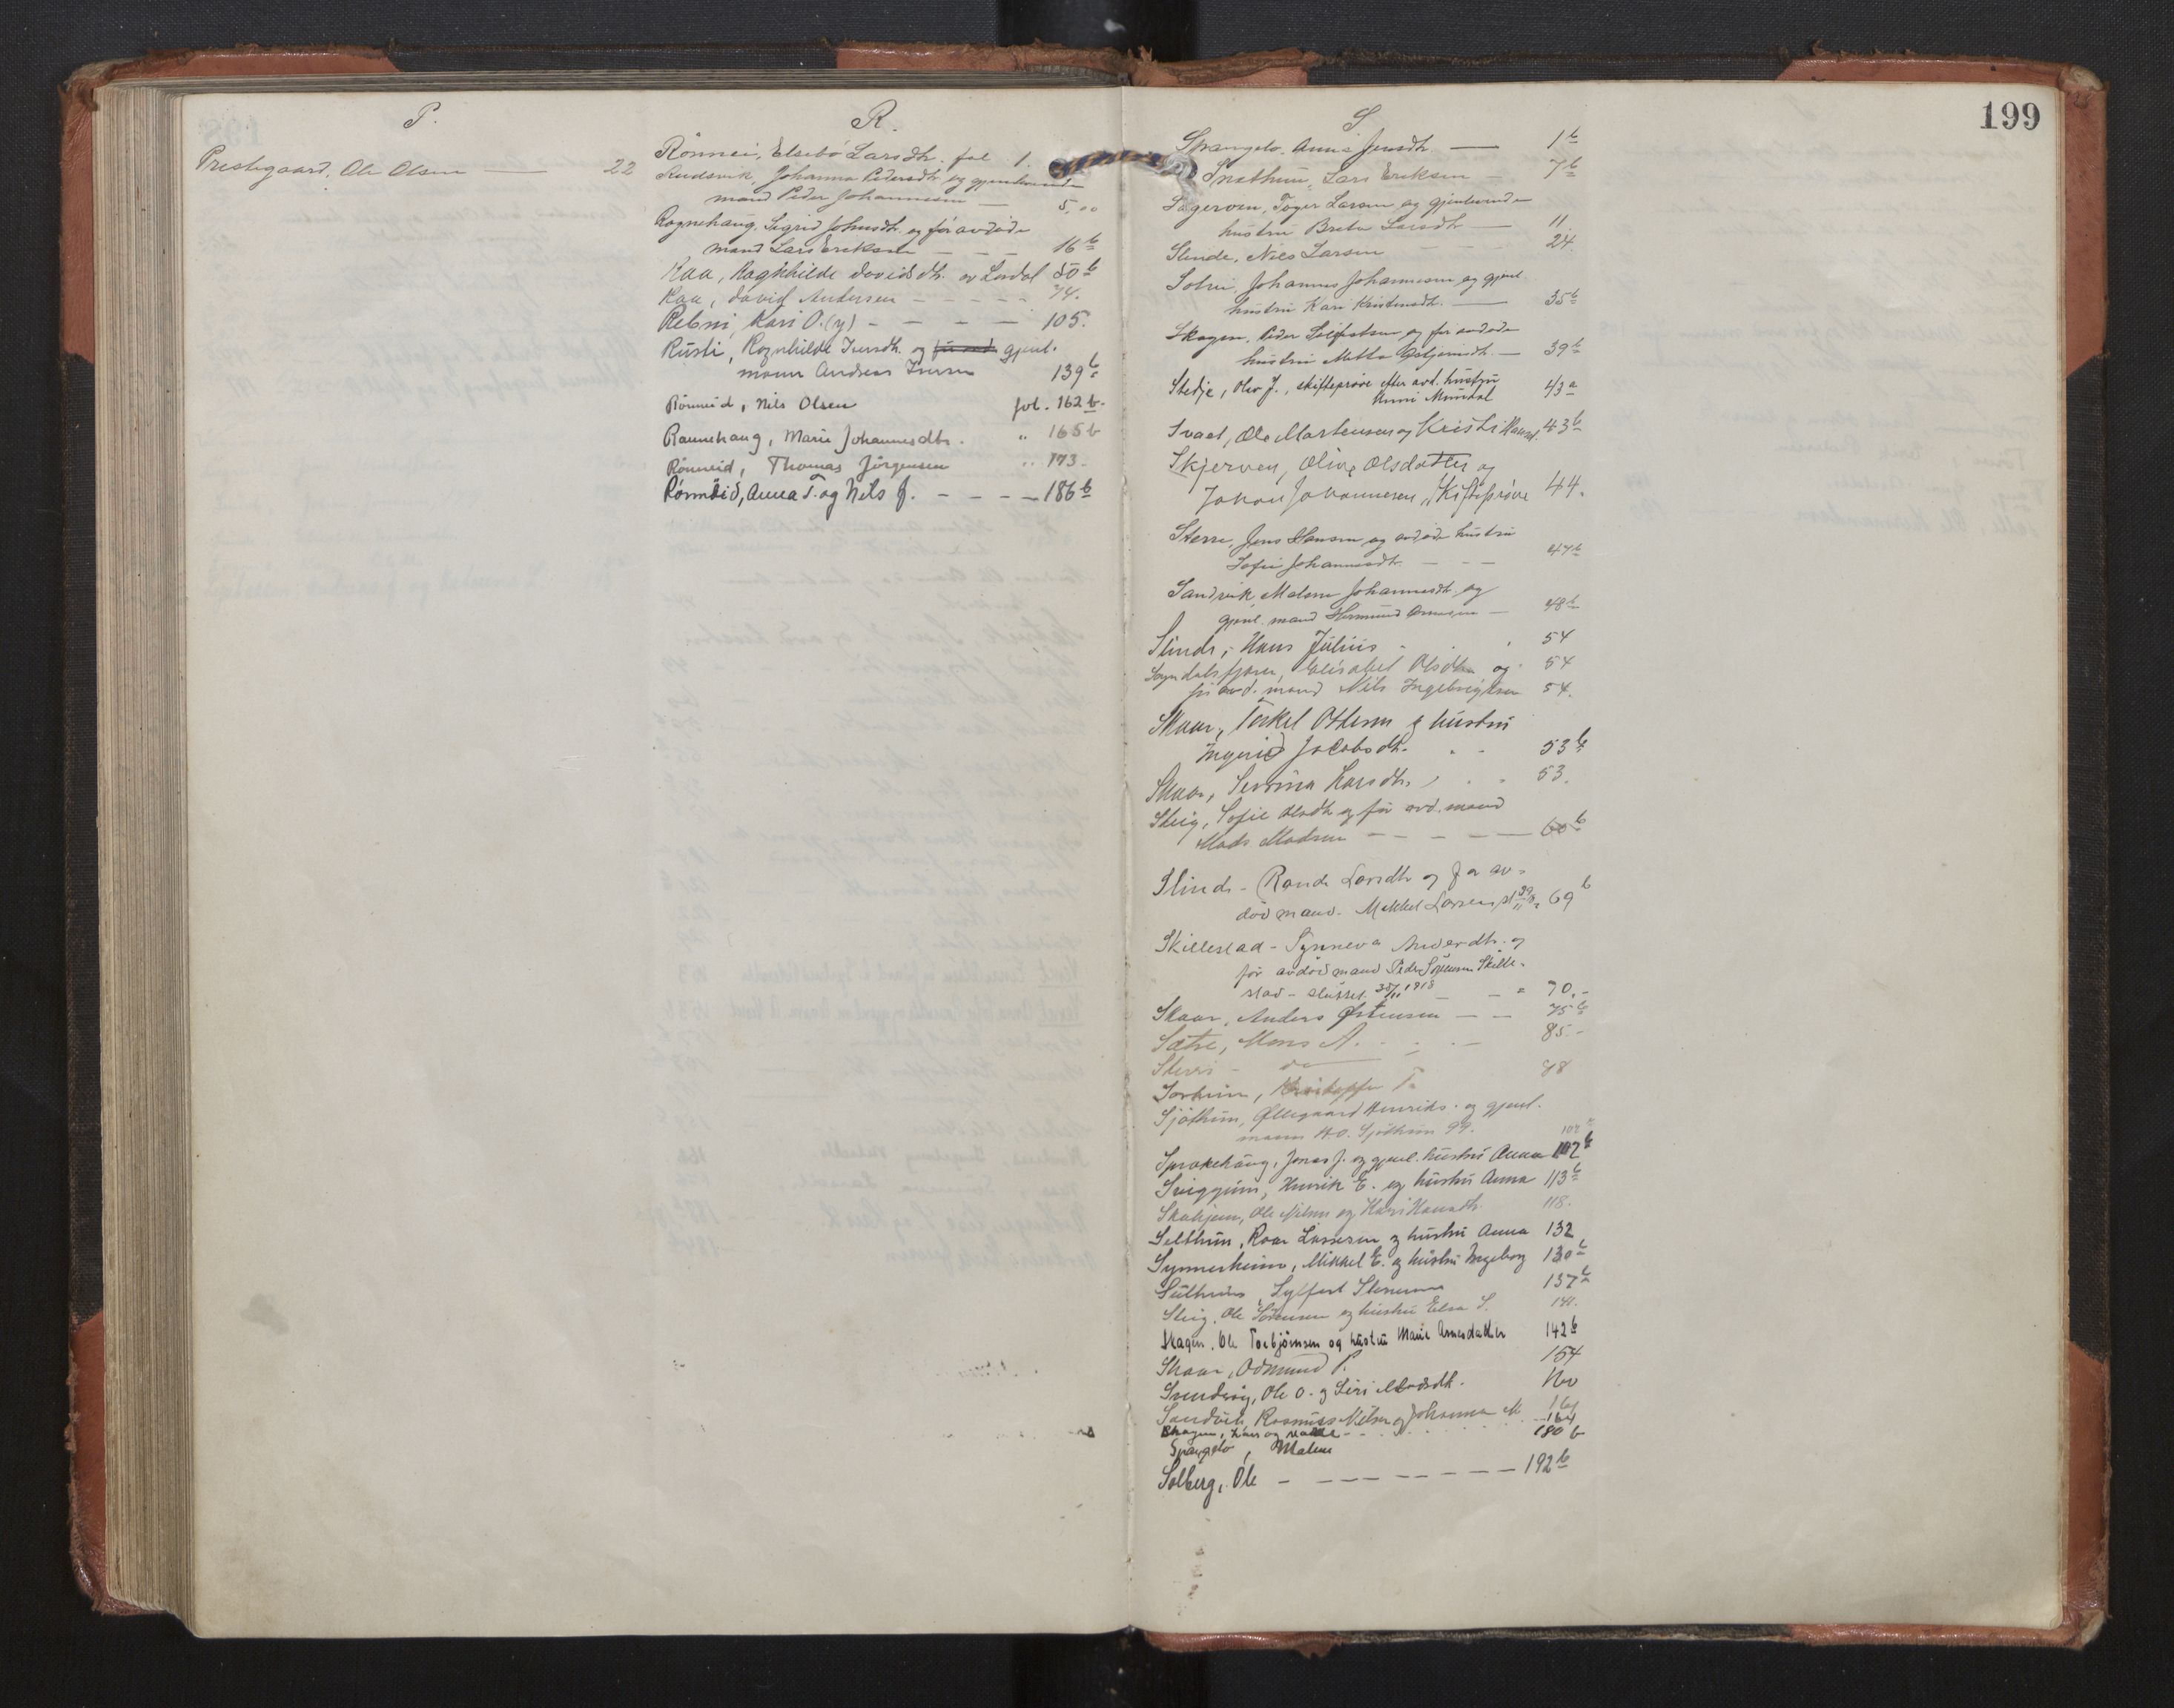 P.
Prestegaard, Ole Olsen — 22
R.
Rönnei, Elsebö Larsdtr. fol 1.
Rudsvik, Johanna Pedersdtr. og gjenlevende
mand Peder Johannessen — 5,00
Rognehaug, Sigrid Johnsdtr. og før avdøde
mand Lars Eriksen — — — 16 b
Raa, Ragnhilde Davidsdtr. av Lærdal 50 b
Raa, David Andersen — — — — — 74.
Rebni, Kari O. (y) — — — — 105.
Rusti, Ragnhilde Iversdtr. og gjenl.
mann Andreas Iversen 139 b
Rönneid, Nils Olsen fol. 162 b.
Raunehaug, Marie Johannesdtr. " 165 b
Rönneid, Thomas Jörgensen " 173.
Rönneid, Anna T. og Nils J. — — — — 186 b
199
S
Sprangelo, Anna Jensdtr. — 1 b
Snethun, Lars Eriksen — 7 b
Sageroen, Torger Larsen og gjenlevende
hustru Brita Larsdtr — 11.
Slinde, Niels Larsen — — — 24.
Johannes Johannessen og gjenl.
hustru Kari Kristensdtr. — 35 b
Skagen, Peder og før avdøde
hustru — 39 b
Stedje, Olav J., skifteprøve efter avd. hustru
Anni Mundal 43 a
Svaet, Ole Martensen og Kristi 43 b
Skjerven, Oline Olsdatter og
Johan Johannesen, Skifteprøve 44.
Jens Hansen og avdøde hustru
Sofie Johannesdtr. — — — 47 b
Sandvik, Malene Johannesdtr. og
gjenl. mand Hermund — 48 b
Slinde, Hans Julius - 54
Sogndalsfjæren, Elisabet Olsdtr. og 54
før avd. mand Nils Ingebrigtsen 54.
Skaar, Torkel Ottesen og hustru
Ingerid Jacobsdtr. - - 53 b
Skaar, Severina Larsdtr. - - 53.
Steig, Sofie Olsdtr og før avd. mand
Mads Madsen — — — — — 60 b
Slinde - Randi Larsdtr og for av-
död mand. Mikkel Larsen 69 b
Skillestad - Synneva Andersdtr. og
för avdöd mand Peder Sörensen Skille-
stad - sluttet 30/11 1918 — — " 70.-
Skaar, Anders Østensen — — 75 b
Sætre, Mons A. - - — 85.-
98
Sjøthun, Øllegaard Henriks. og gjenl.
mann H.O. Sjøthun 99. 102
Sprakehaug, Jonas J. og gjenl. hustru Anna 102 b
Henrik E. og hustru Anna 113 b
Skahjem, Ole Nilsen og Kari Hansdtr. 118.
Selthun, Roar Lassesen og hustru Anna 132
Synnerheim, Mikkel E. og hustru Ingeborg 130 b
Sylfest 137 b
Steig, Ole Sørensen og hustru Elsa S. 141.
Skagen, Ole Torbjørnsen og hustru Marie Arnesdatter 142 b
Skaar, Odmund P. 154
Ole O. og Siri 160
Sandvik, Rasmus Nilsen og Johanna M. 161
Skagen, Lars og — — 164
Sprangelo, Malene 180 b
Solberg, Ole — — — — — — — 192 b